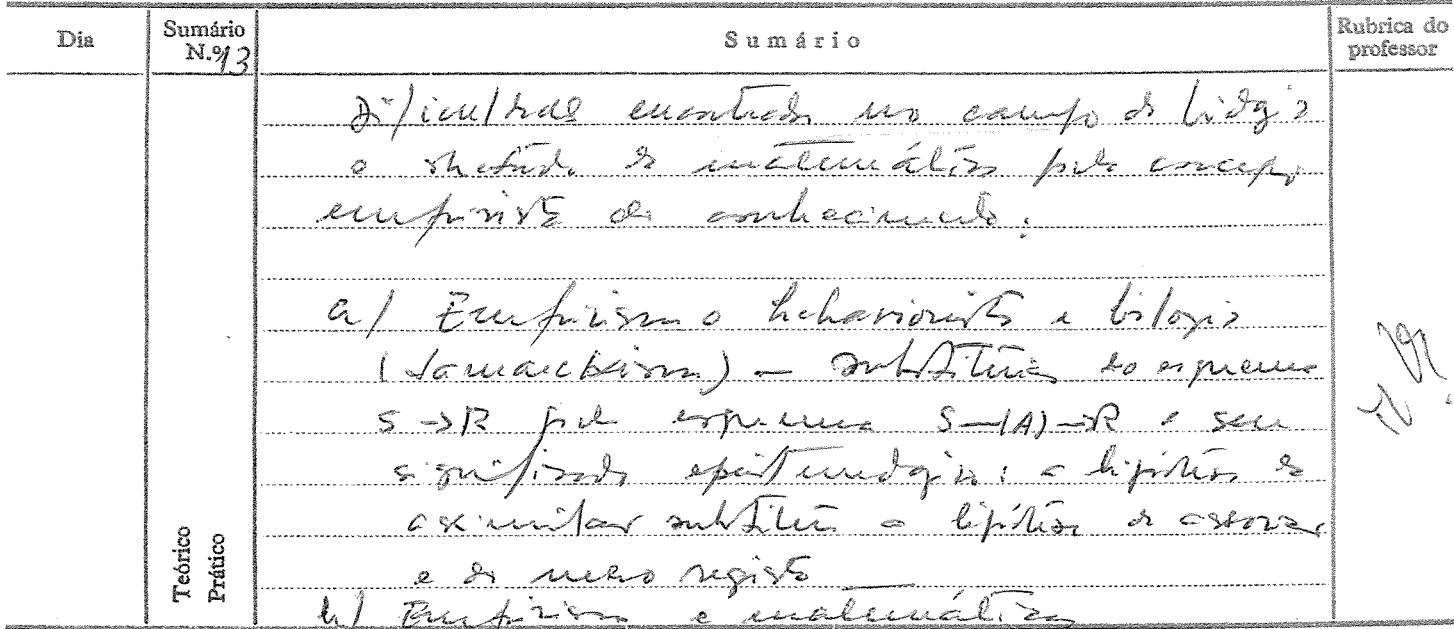 Dia
Sumário N.º 13
Sumário
Rubrica do professor
Dificuldades encontradas no campo da biologia
e da matemática pela concepção
empirista do conhecimento:
a) Empirismo behaviorista e biologia
(Lamarckismo) — substituição do esquema
S→R pelo esquema S→(A)→R e seu
significado epistemológico: a hipótese da
assimilação substitui a hipótese da associação
e do mero registo —
b) Empirismo e matemática
Teórico
Prático